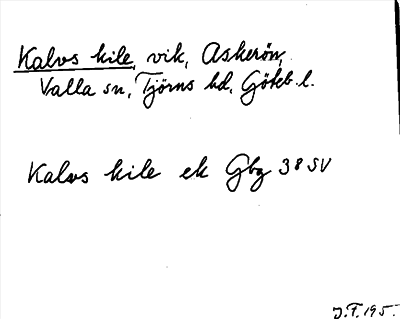 Kalvs kile, vik, Askerön,
Valla sn, Tjörns hd, Göteb. l.
Kalvs kile ek Gbg 38 SV
J.F. 195.